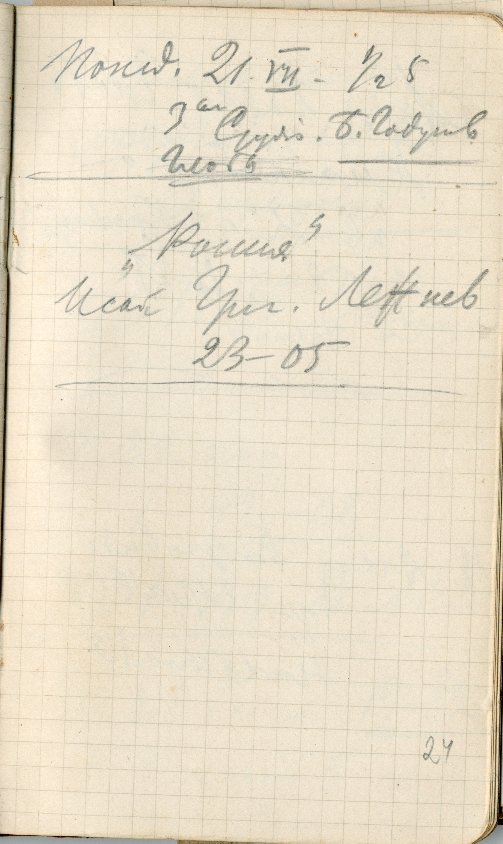 Понед. 21. VII – 1/2 5
3ая Студ. Б. Годунов
"Россия"
Исай Григ. Лежнев
23–05
24